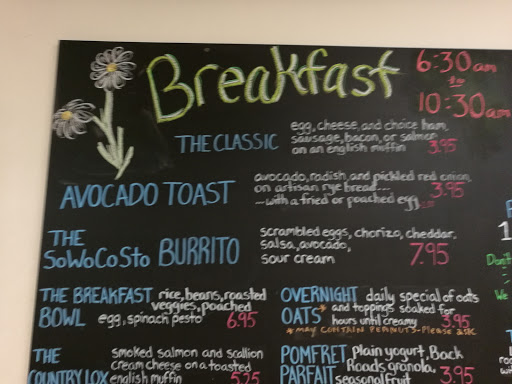 Breakfast
6:30am
to
10:30am
THE CLASSIC
egg, cheese, and choice ham,
sausage, bacon, or salmon
on an english muffin 3.95
AVOCADO TOAST
avocado, radish, and pickled red onion
on artisan rye bread... 3.95
...with a fried or poached egg
THE
SoWoCoSto BURRITO
scrambled eggs, chorizo, cheddar,
salsa, avocado,
sour cream 7.95
THE BREAKFAST
BOWL
rice, beans, roasted
veggies, poached
egg, spinach pesto 6.95
OVERNIGHT
OATS
daily special of oats
and toppings soaked for
hours until creamy 3.95
* MAY CONTAIN PEANUTS - Please ask
THE
COUNTRY LOX
smoked salmon and scallion
cream cheese on a toasted
english muffin 5.25
POMFRET
PARFAIT
Plain yogurt, Back
Roads granola,
seasonal fruit 3.95
Don't
We